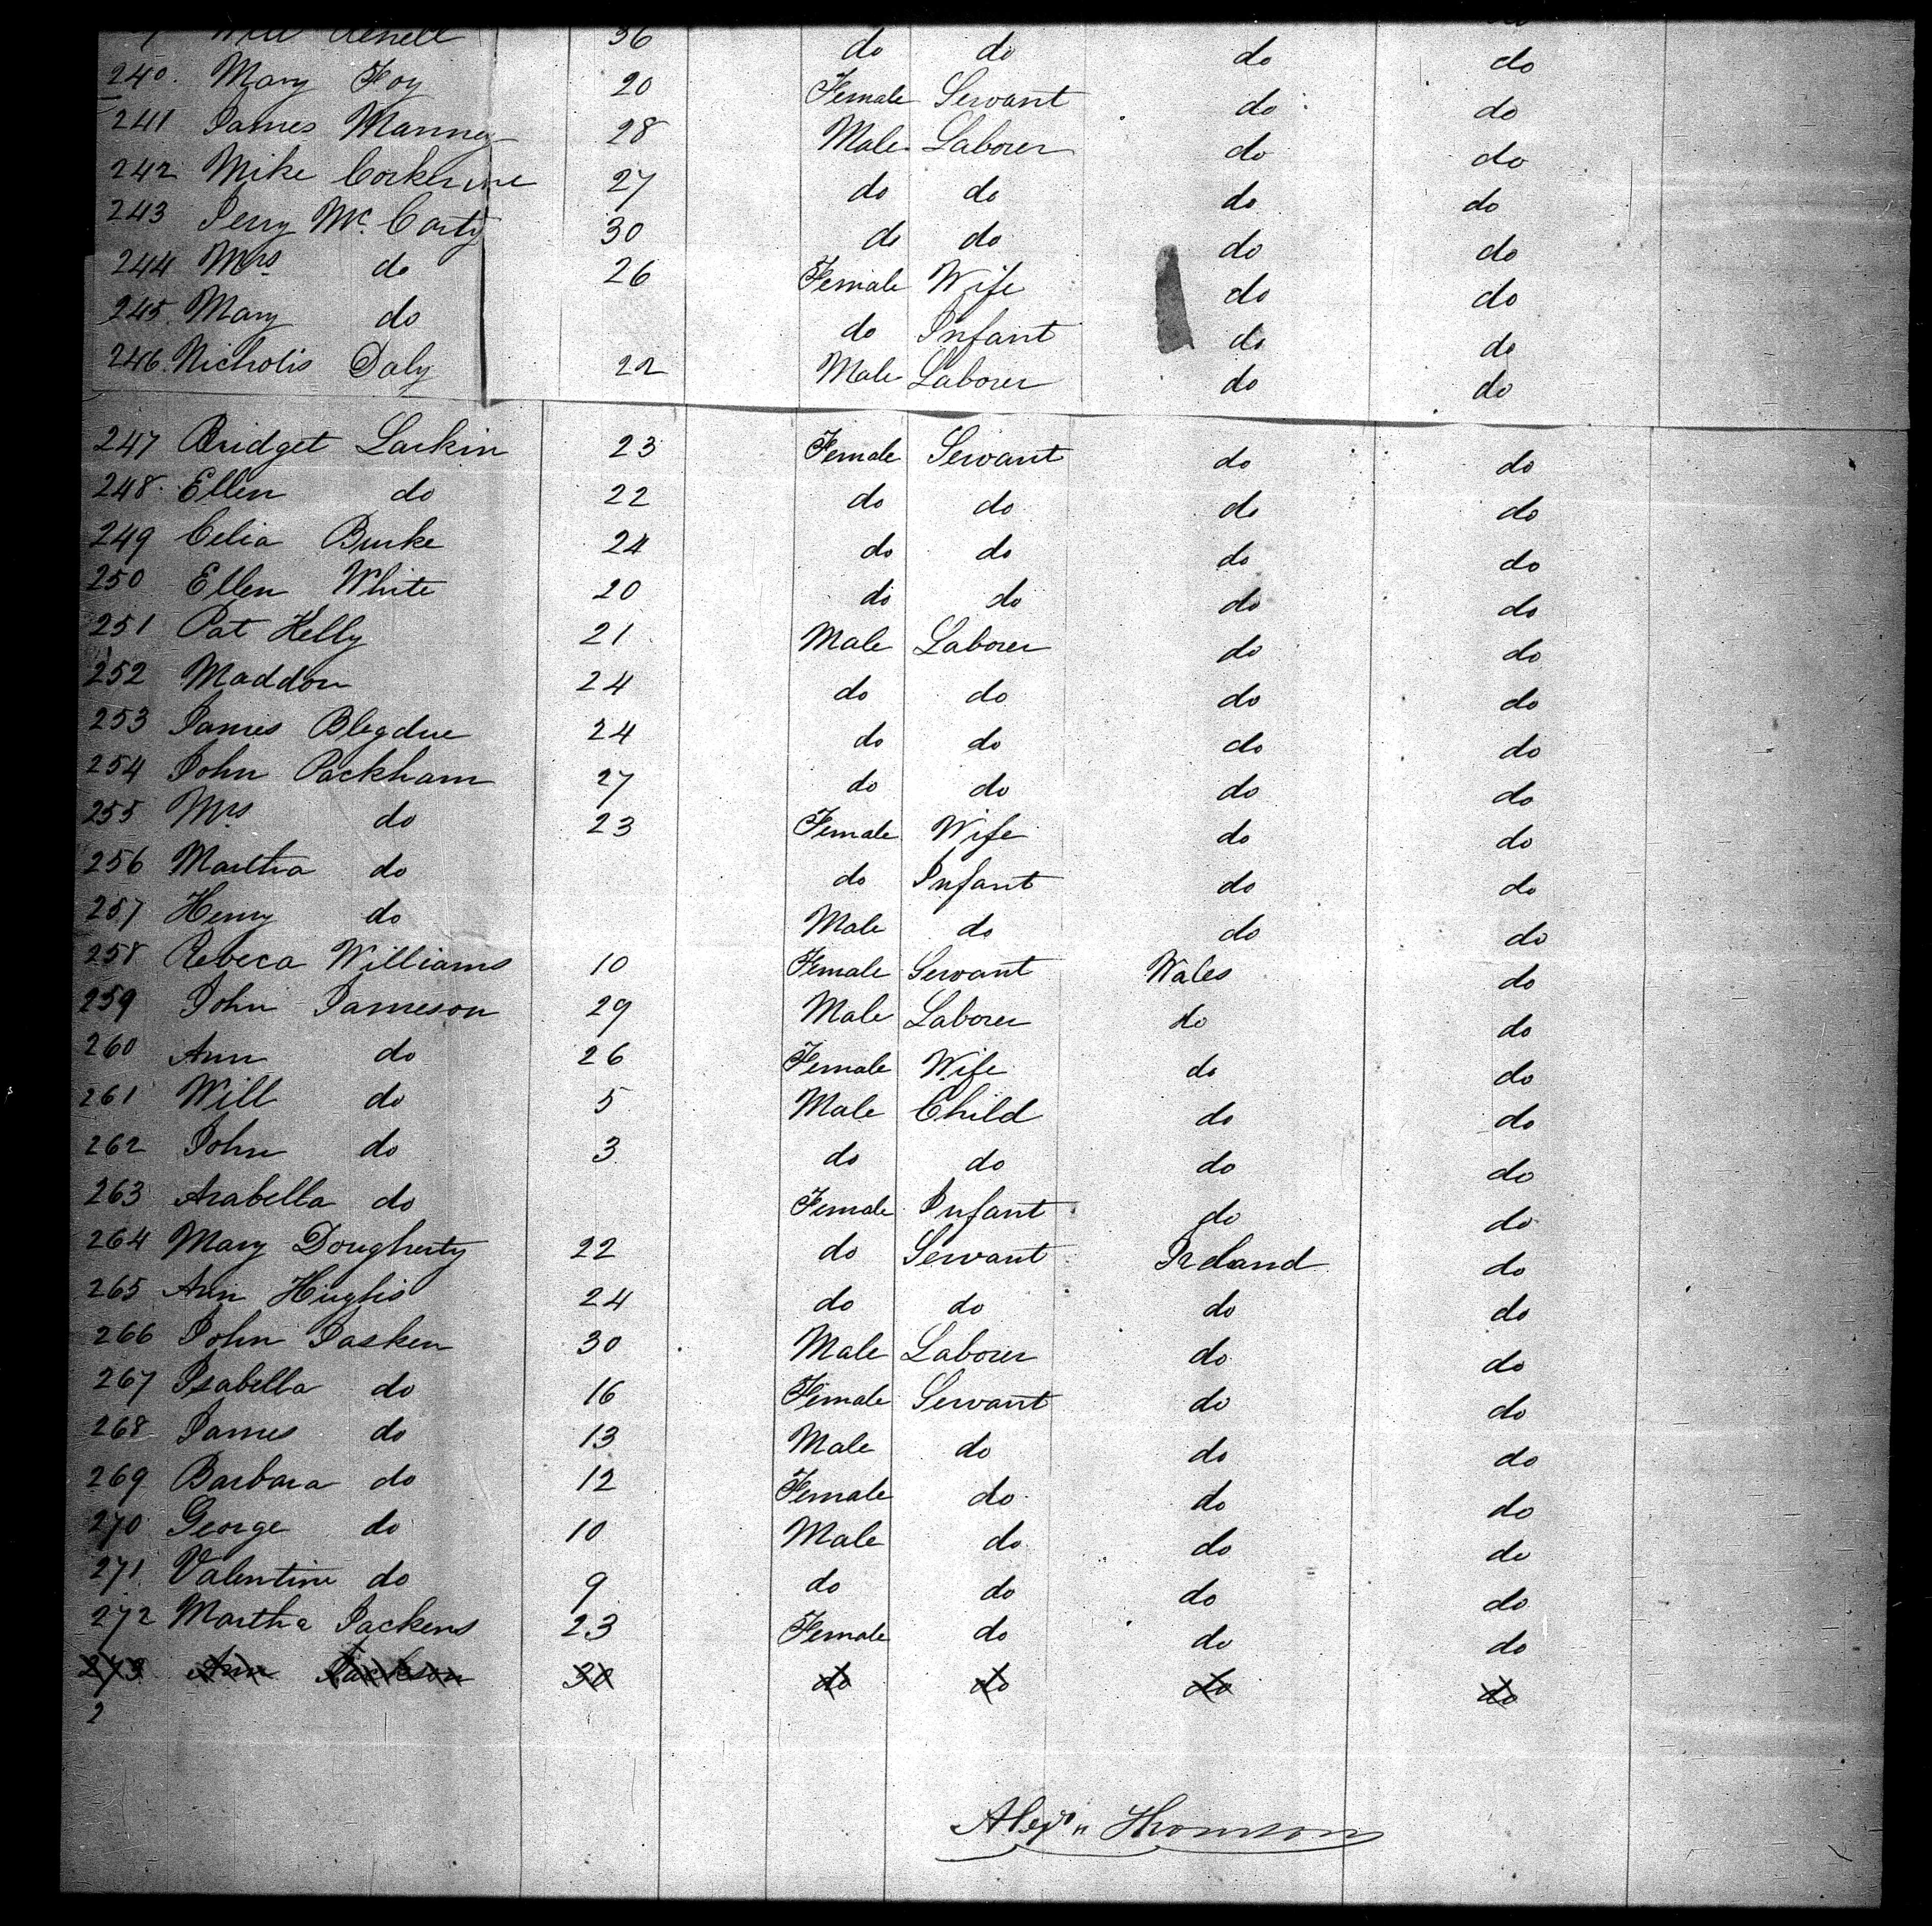 Will 36 do do do do
240. Mary Foy 20 Female Servant do do
241 James Manney 28 Male Laborer do do
242 Mike 27 do do do do
243 Jerry Mc. Carty 30 do do do do
244 Mrs do 26 Female Wife do do
245. Mary do do Infant do do
246. Nicholis Daly 22 Male Laborer do do
247 Bridget Larkin 23 Female Servant do do
248. Ellen do 22 do do do do
249 Celia Burke 24 do do do do
250 Ellen White 20 do do do do
251 Pat Kelly 21 Male Laborer do do
252 Maddon 24 do do do do
253 James 24 do do do do
254 John Packham 27 do do do do
255 Mrs do 23 Female Wife do do
256 Martha do do Infant do do
257 Henry do Male do do do
258 Rebeca Williams 10 Female Servant Wales do
259 John Jameson 29 Male Laborer do do
260 Ann do 26 Female Wife do do
261 Will do 5 Male Child do do
262 John do 3 do do do do
263 Arabella do Female Infant do do
264 Mary Dougherty 22 do Servant Ireland do
265 Ann Hughis 24 do do do do
266 John Jasken 30 Male Laborer do do
267 Isabella do 16 Female Servant do do
268 James do 13 Male do do do
269 Barbara do 12 Female do do do
270 George do 10 Male do do do
271 Valentine do 9 do do do do
272 Martha Jackens 23 Female do do do
273 Ann Jackson 30 do do do do
2
Alexr Thomson